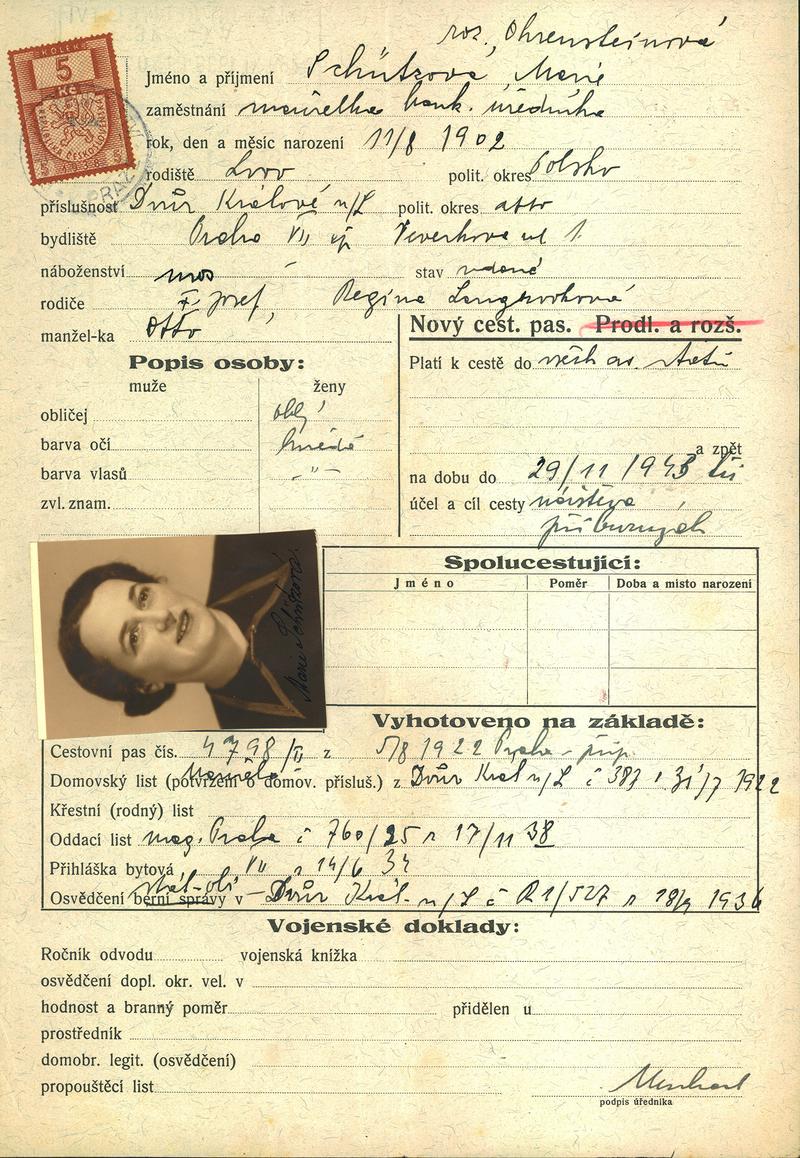 roz. Ohrensteinová
KOLEK
5
Kč
Jméno a příjmení Schützová, Marie
zaměstnání manželka bank. úředníka
rok, den a měsíc narození 11/8 1902
rodiště Lvov polit. okres Polsko
příslušnost Dvůr Králové n/L polit. okres atto
bydliště Praha VII, Veverkova ul 1
náboženství mos stav vdaná
rodiče Josef, Regina
manžel-ka Otto
Nový cest. pas. Prodl. a rozš.
Popis osoby:
Platí k cestě do všech států
muže ženy
obličej oblý
barva očí hnědé
barva vlasů -"-
a zpět
na dobu do 29/11 1943
zvl. znam.
účel a cíl cesty návštěva
příbuzných
Marie Schützová
Spolucestující:
Jméno Poměr Doba a místo narození
Vyhotoveno na základě:
Cestovní pas čís. 4798/II z 5/8 1922 Praha
Domovský list (potvrzení o domov. přísluš.) z Dvůr Král n/L č 387 31/7 1922
Křestní (rodný) list
Oddací list mag. Praha č 760/25 17/11 38
Přihláška bytová VII 14/6 34
Osvědčení berní správy v Dvůr Král. n/L č R1/527 18/9 1936
Vojenské doklady:
Ročník odvodu vojenská knížka
osvědčení dopl. okr. vel. v
hodnost a branný poměr přidělen u
prostředník
domobr. legit. (osvědčení)
propouštěcí list
podpis úředníka